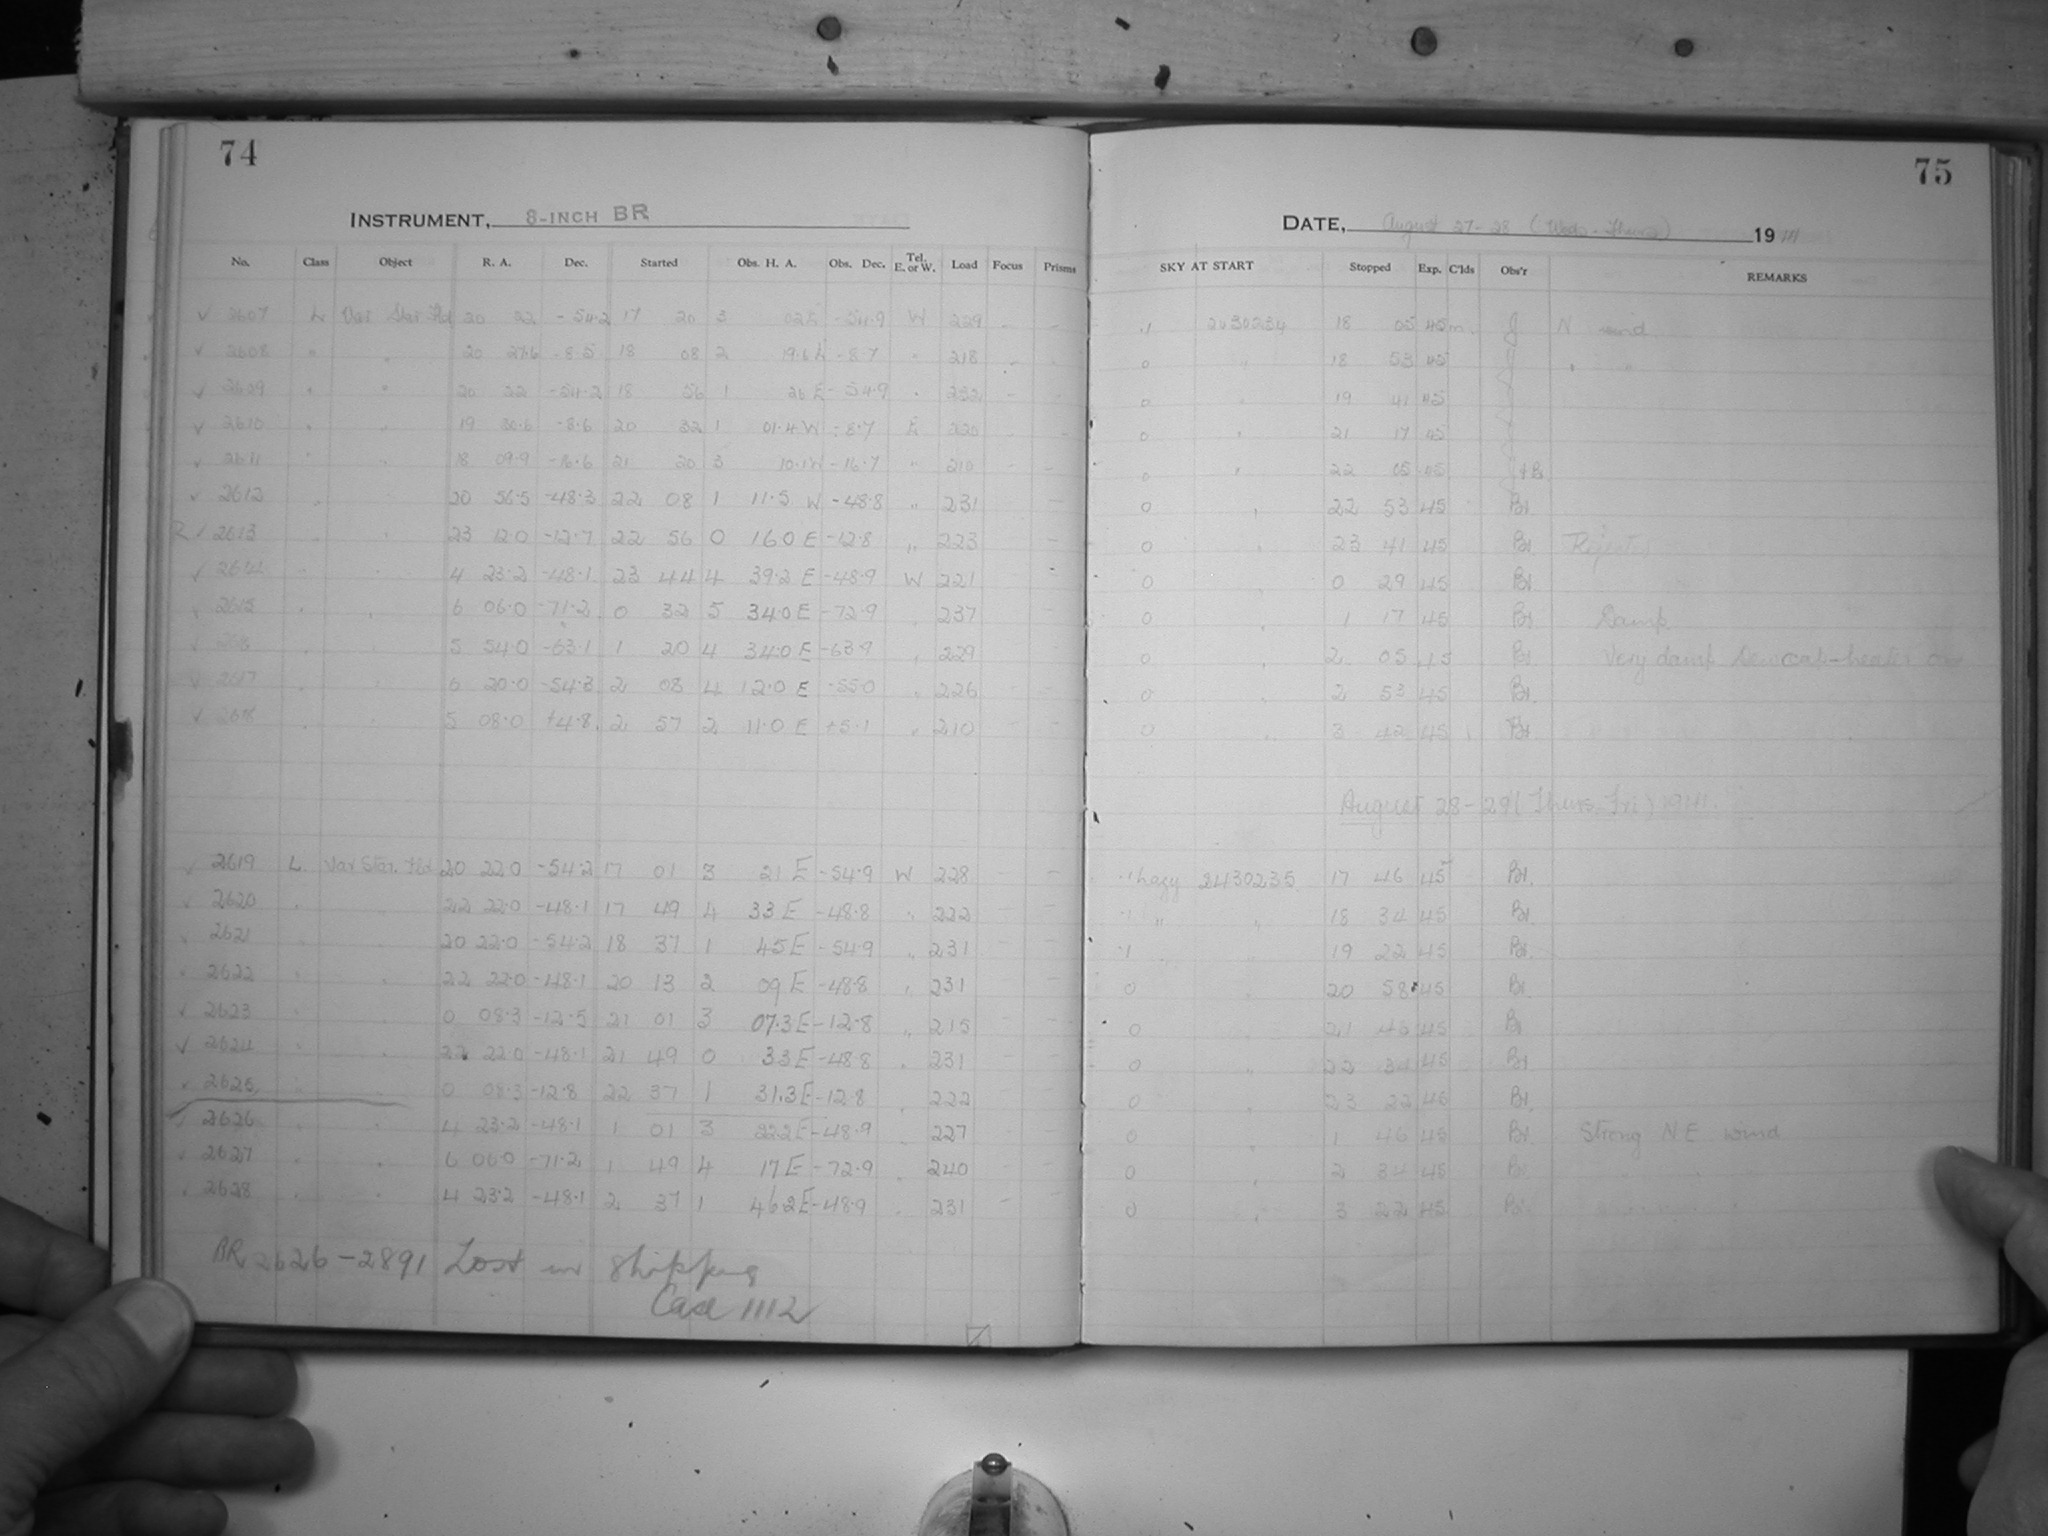 74
INSTRUMENT, 8-INCH BR
No. Class Object R. A. Dec. Started Obs. H. A. Obs. Dec. Tel. E. or W. Load Focus Prisms
2607 L Var Star Fld 20 22 -54.2 17 20 3 02E -54.9 W 229
2608 " " 20 27.6 -8.5 18 08 2 19.6E -8.7 " 218
20 22 -54.2 18 56 1 26E -54.9 " 232
2610 " " 19 30.6 -8.6 20 32 1 01.4W -8.7 E 220
2611 " " 18 09.9 -16.6 21 20 3 10.1W -16.7 " 210
2612 20 56.5 -48.3 22 08 1 11.5 W -48.8 " 231
R 2613 23 12.0 -12.7 22 56 0 16.0 E -12.8 " 223
2614 4 23.2 -48.1 23 44 4 39.2 E -48.9 W 221
2615 6 06.0 -71.2 0 32 5 34.0 E -72.9 237
5 54.0 -63.1 1 20 4 34.0 E -63.9 229
2617 6 20.0 -54.3 2 08 4 12.0 E -55.0 226
2618 5 08.0 +4.8 2 57 2 11.0 E +5.1 210
2619 L Var Star. Fld 20 22.0 -54.2 17 01 3 21 E -54.9 W 228
2620 22 22.0 -48.1 17 49 4 33 E -48.8 " 222
2621 20 22.0 -54.2 18 37 1 45 E -54.9 " 231
2622 22 22.0 -48.1 20 13 2 09 E -48.8 " 231
2623 0 08.3 -12.5 21 01 3 07.3 E -12.8 " 215
2624 22 22.0 -48.1 21 49 0 33 E -48.8 231
2625 0 08.3 -12.8 22 37 1 31.3 E -12.8 222
2626 4 23.2 -48.1 1 01 3 22.2 E -48.9 227
2627 6 06.0 -71.2 1 49 4 17 E -72.9 240
2628 4 23.2 -48.1 2 37 1 46.2 E -48.9 231
BR 2626-2891 Lost in shipping
Case 1112
75
DATE, August 27-28 (Weds-Thurs) 1941
SKY AT START Stopped Exp. C'lds Obs'r REMARKS
.1 2430234 18 05 45m. J N wind
0 " 18 53 45 J " "
0 " 19 41 45
0 " 21 17 45
0 " 22 05 45 J+Bl
0 " 22 53 45 Bl.
0 " 23 41 45 Bl.
0 " 0 29 45 Bl.
0 " 1 17 45 Bl Damp
0 " 2 05 45 Bl. Very damp Dewcap-heater on
0 2 53 45 Bl.
0 " 3 42 45 Bl.
August 28-29 (Thurs-Fri) 1941.
.1 hazy 2430235 17 46 45 Bl.
.1 " " 18 34 45 Bl.
.1 " " 19 22 45 Bl.
0 " 20 58 45 Bl.
0 " 21 46 45 Bl
0 " 22 34 45 Bl.
0 " 23 22 45 Bl.
0 " 1 46 45 Bl. Strong NE wind
0 " 2 34 45 Bl
0 " 3 22 45 Bl.